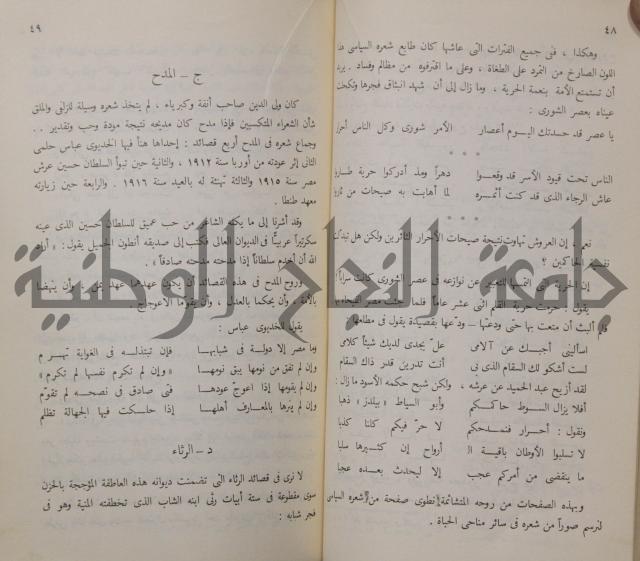 ٤٨
وهكذا ، فى جميع الفترات التى عاشها كان طابع شعره السياسى هذا
اللون الصارخ من التمرد على الطغاة ، وعلى ما اقترفوه من مظالم وفساد . يريد
أن تستمتع الأمة بنعمة الحرية ، وما زال إلى أن شهد انبثاق فجرها وتكحلت
عيناه بعصر الشورى :
يا عصر قد حسدتك اليوم أعصار الأمر شورى وكل الناس أحرار
* * *
الناس تحت قيود الأسر قد وقعوا دهراً ومذ أدركوا حرية طاروا
عاش الرجاء الذى قد كنت أنشره لما أهابت به صيحات من ثاروا
* * *
نعم إن العروش تهاوت نتيجة صيحات الأحرار الثائرين ولكن هل تبدلت
نفسية الحاكمين ؟
إن الحرية التى التمسها للتعبير عن نوازعه فى عصر الشورى كانت سراباً
يقول : حرمت حرية القلم اثنى عشر عاماً فلما جئت مصر الفيحاء
فلم ألبث أن متعت بها حتى ودعتها ــ ودعها بقصيدة يقول فى مطلعها
اسأليني أجبك عن آلامى علّ يجدى لديك شيئاً كلامى
لست أشكو لك السقام الذى بى أنت تدرين قدر ذاك السقام
لقد أزيح عبد الحميد عن عرشه ، ولكن شبح حكمه الأسود ما زال :
أفلا يزال السوط حاكمكم وأبو السياط « بيلدز » ذهبا
ونقول : أحرار فنمدحكم لا حرّ فيكم كلنا كذبا
لا تسلبوا الأوطان باقية أرواح إن كثيرها سلبا
ما ينقضى من أمركم عجب إلا ليحدث بعده عجبا
وبهذه الصفحات من روحه المتشائمة تنطوى صفحة من شعره السياسى
لنرسم صوراً من شعره فى سائر مناحى الحياة .
٤٩
ج ــ المدح
كان ولى الدين صاحب أنفة وكبرياء ، لم يتخذ شعره وسيلة للزلفى والملق
شأن الشعراء المتكسبين فإذا مدح كان مديحه نتيجة مودة وحب وتقدير . .
وجماع شعره فى المدح أربع قصائد : إحداها هنأ فيها الخديوى عباس حلمى
الثانى إثر عودته من أوربا سنة ١٩١٢ ، والثانية حين تبوأ السلطان حسين عرش
مصر سنة ١٩١٥ والثالثة تهنئة له بالعيد سنة ١٩١٦ . والرابعة حين زيارته
معهد طنطا .
وقد أشرنا إلى ما يكنه الشاعر من حب عميق للسلطان حسين الذى عينه
سكرتيراً عربيا فى الديوان العالى فكتب إلى صديقه أنطون الجميل يقول : « أراد
الله أن أخدم سلطاناً إذا مدحته مدحته صادقاً » .
وروح المدح فى هذه القصائد أن يكون عهدهما عهد يمن ، وأن ينهضا
بالأمة ، وأن يحكما بالعدل ، وأن يقوّما الاعوجاج .
يقول للخديوى عباس :
وما مصر إلا دولة فى شبابها فإن تبتذله فى الغواية تهرم
وإن لم تفق من نومها يبق نومها « وإن لم تكرم نفسها لم تكرم »
وإن لم يقومها إذا اعوج عودها فتى صادق فى نصحه لم تقوّم
وإن لم ينرها بالمعارف أهلها إذا حلكت فيها الجهالة تظلم
د ــ الرثاء
لا نرى فى قصائد الرثاء التى تضمنت ديوانه هذه العاطفة المؤججة بالحزن
سوى مقطوعة فى ستة أبيات رثى ابنه الشاب الذى تخطفته المنية وهو فى
فجر شبابه :
جامعة النجاح الوطنية